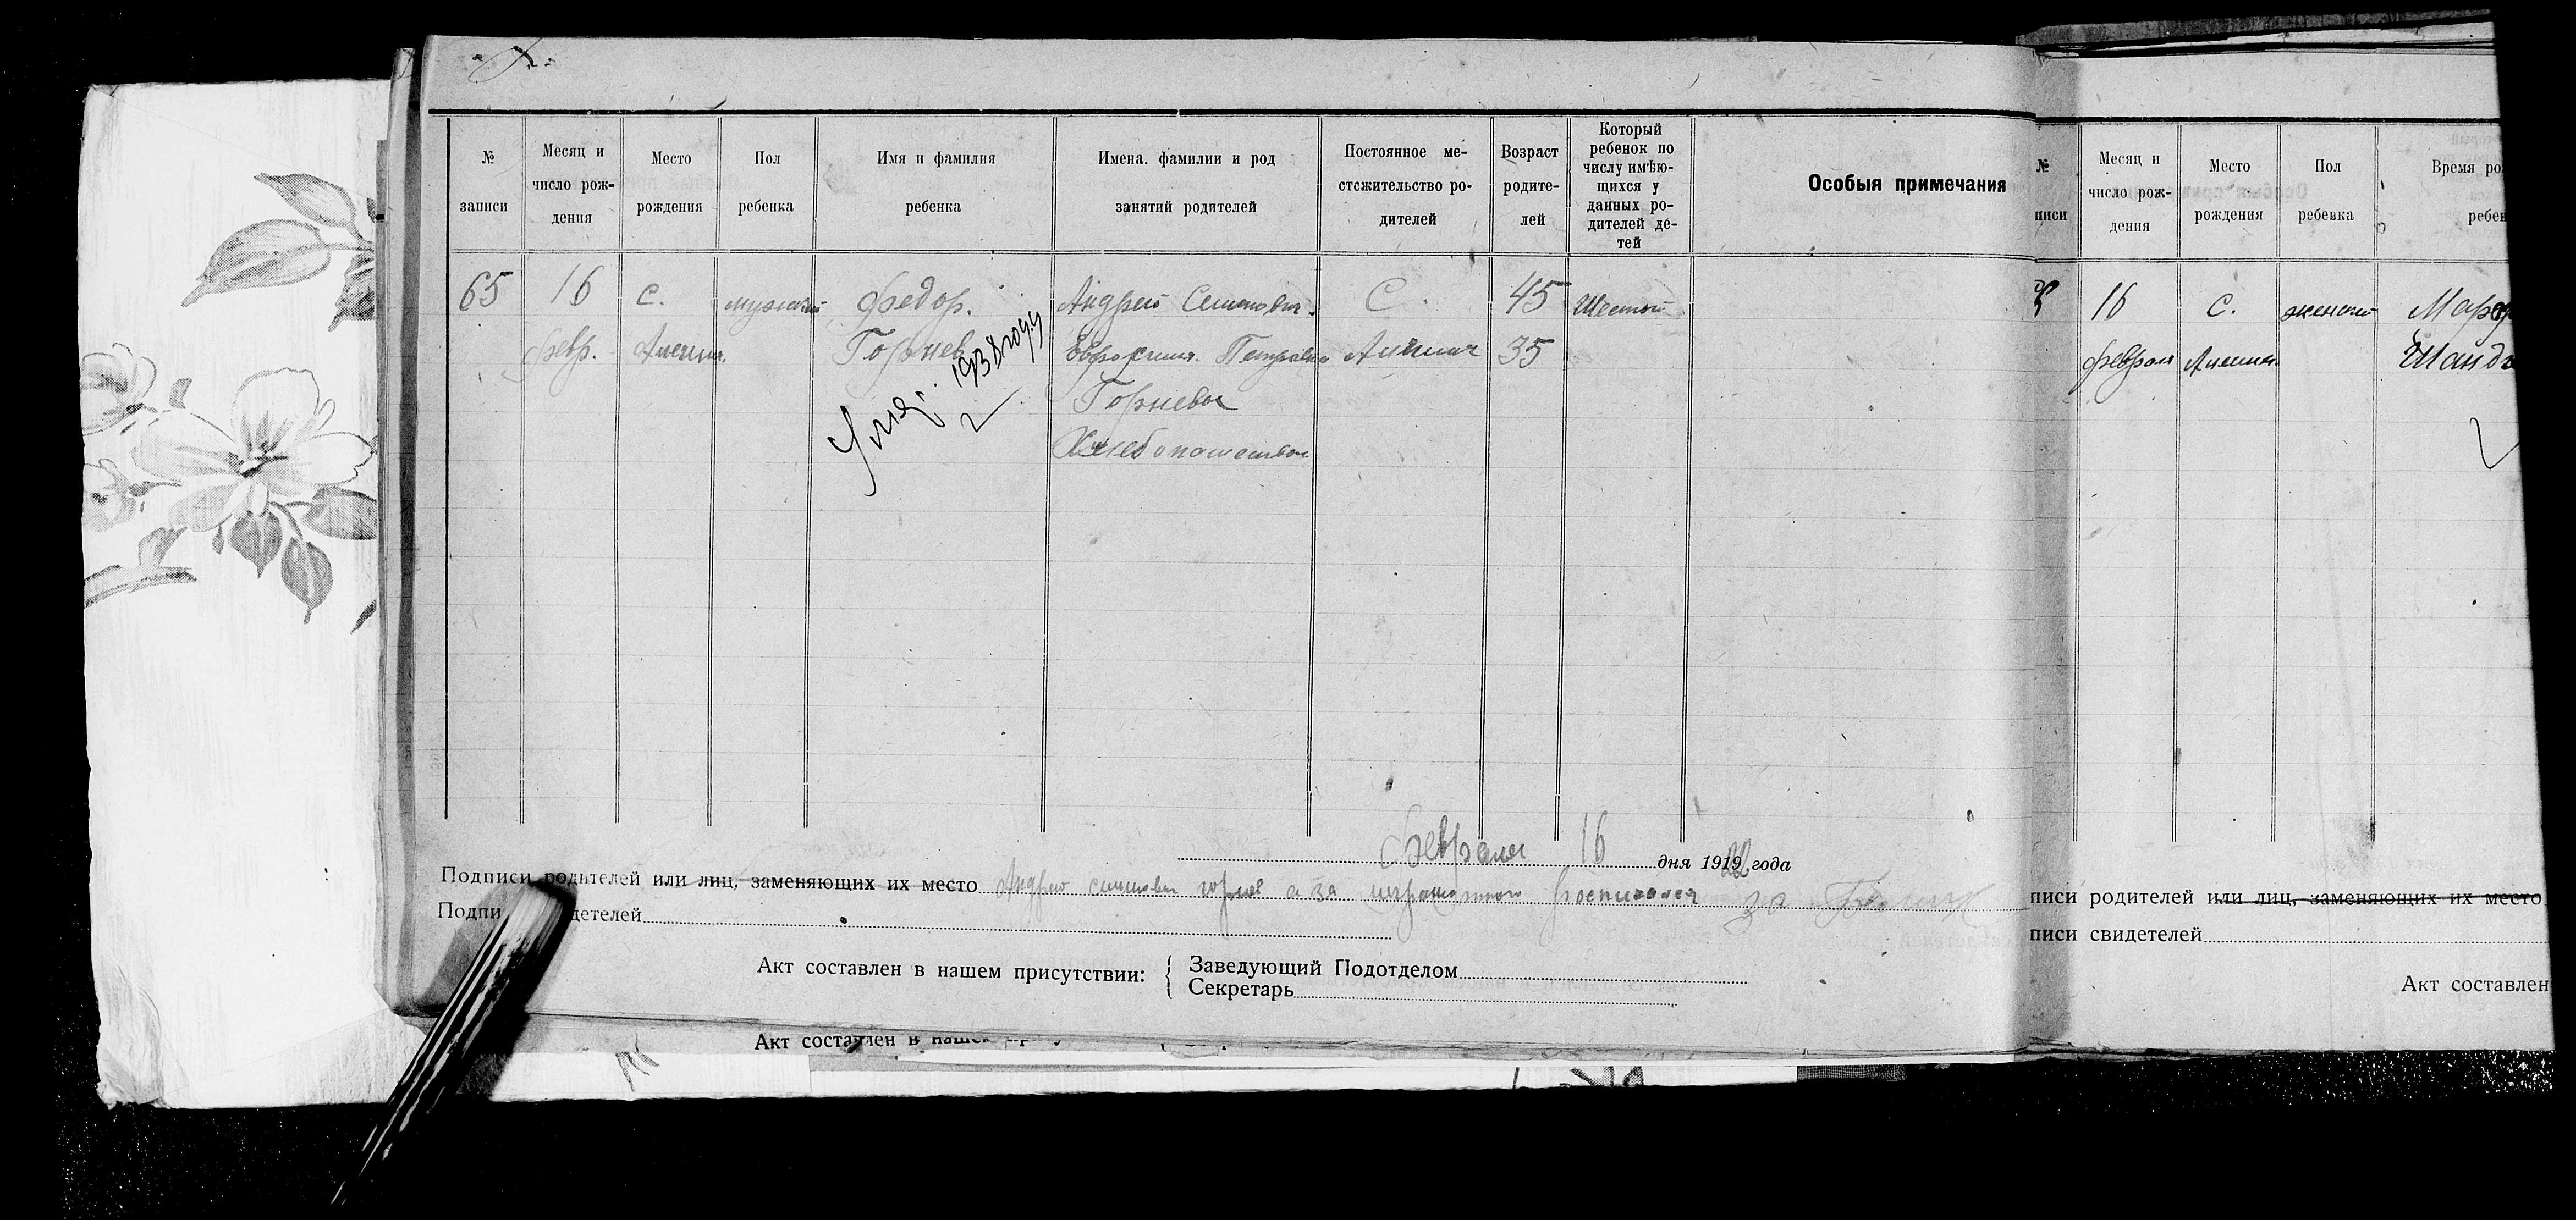 № записи
Месяц и число рож-дения
Место рождения
Пол ребенка
Имя и фамилия ребенка
Имена. фамилии и род занятий родителей
Постоянное ме-стожительство ро-дителей
Возраст родите-лей
Который ребенок по числу имѣю-щихся у данных ро-дителей де-тей
Особыя примечания
65
16 февр.
с.
мужской
Федор.
Горнев
1938 году
Андрей Семенович.
Евфросиния. Петровна
Горневы
Хлебопашество
С.
45
35
Шестой
Февраля 16 дня 1922 года
Подписи родителей или лиц, заменяющих их место Андрей горнев а за неграмотного росписался за
Подпи детелей
Акт составлен в нашем присутствии:
Заведующий Подотделом
Секретарь
Акт составлен в
№ писи
Месяц и число рож-дения
Место рождения
Пол ребенка
Время ро
ребен
16
с.
женский
писи родителей или лиц, заменяющих их место
писи свидетелей
Акт составлен